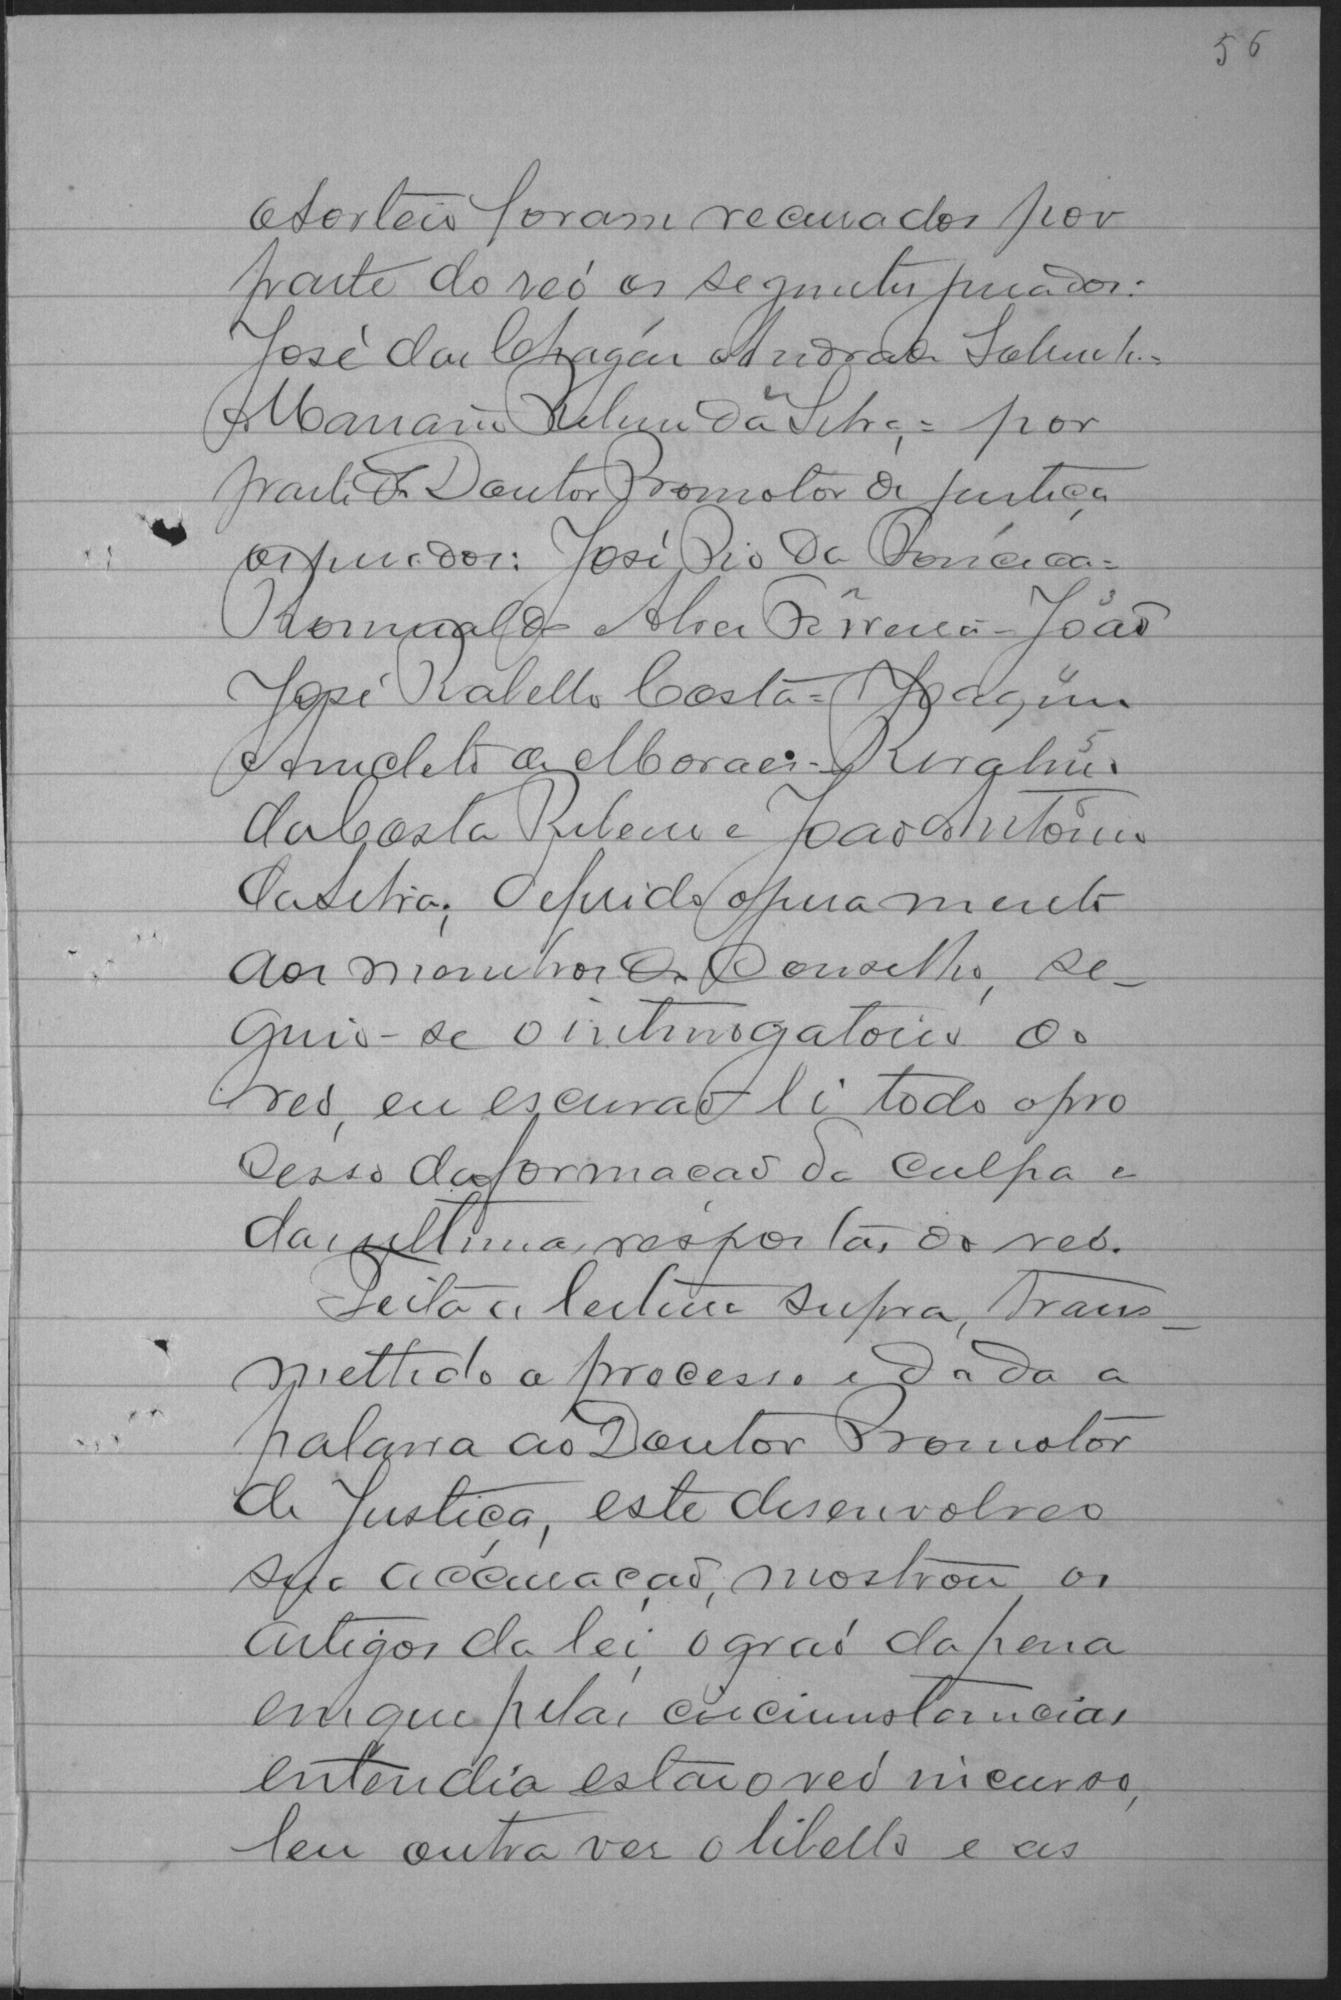 56
o sorteio foram recusados por
parte do reó os seguintes jurados:
José das Chagas Andrade
Marianno Ribeiro da Silva, = por
parte do Doutor Promotor de justiça
os jurados: José Pio da Fonceca =
Romualdo Alves Ferreira - João
José Rabello Costa = Joaquim
Anacleto de Moraes -
da Costa Ribeiro e João Antonio
da Silva; Deferido o juramento
aos membros do Conselho, se-
guio-se o interrogatorio do
reó, eu escrivaõ li todo o pro
cesso da formacaõ da culpa e
das ultimas respostas do reó.
Feita a leitura supra, trans-
mettido o processo e dada a
palavra ao Doutor Promotor
de Justiça, este desenvolveo
sua accusaçaõ, mostrou os
artigos da lei, o graó da pena
em que pelas circumstancias
entendia estar o reó incurso,
leu outra vez o libello e as